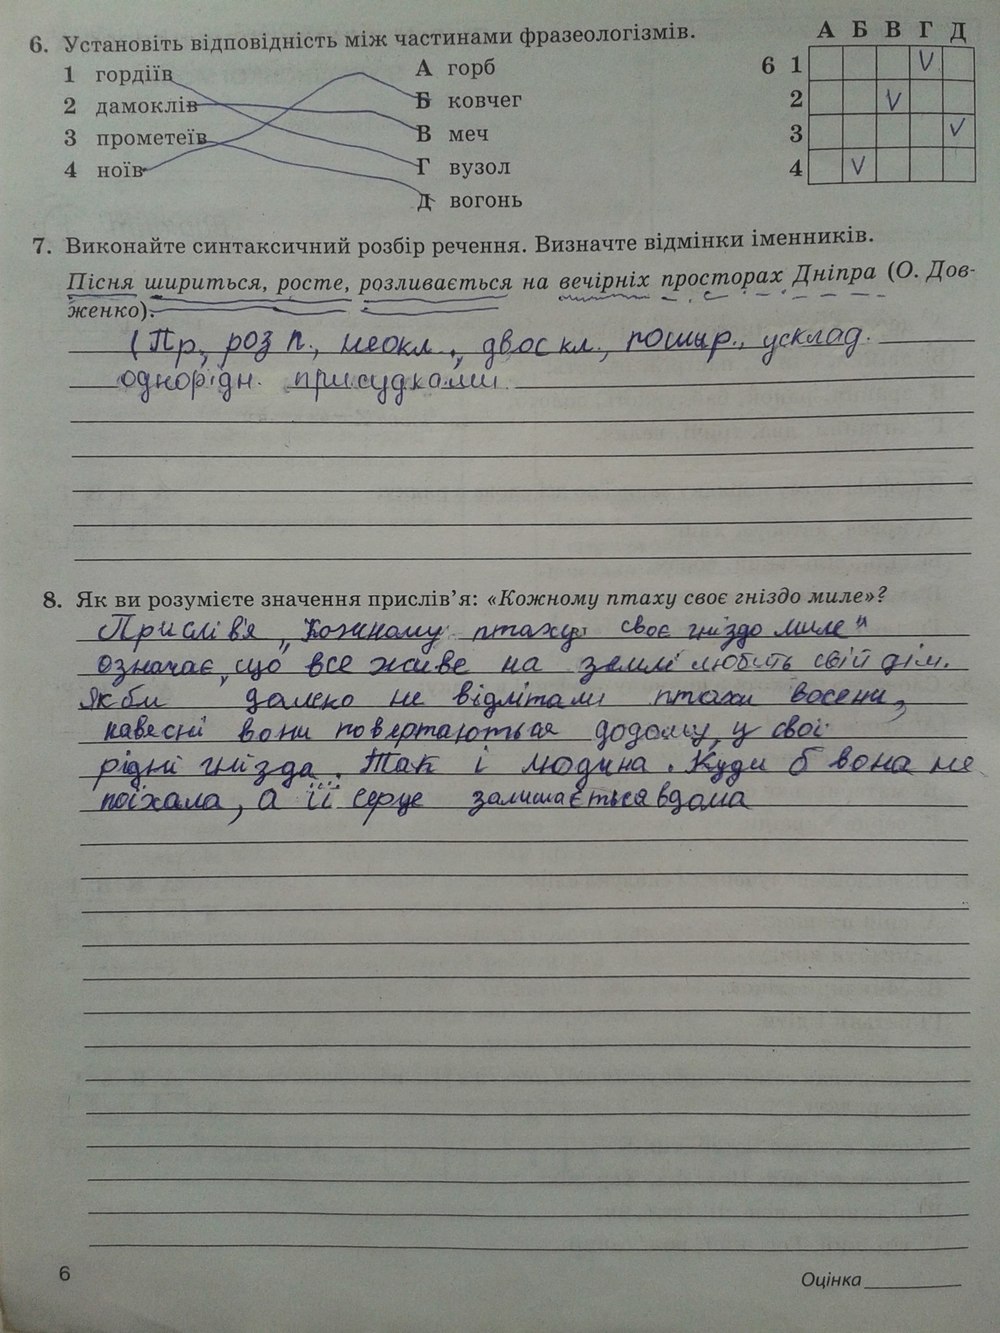 6. Установіть відповідність між частинами фразеологізмів.
1 гордіїв
2 дамоклів
3 прометеїв
4 ноїв
А горб
Б ковчег
В меч
Г вузол
Д вогонь
А Б В Г Д
6 1
2
3
4
7. Виконайте синтаксичний розбір речення. Визначте відмінки іменників.
Пісня шириться, росте, розливається на вечірніх просторах Дніпра (О. Дов-
женко).
(Пр., розп., неокл., двоскл., пошир., усклад.
однорідн. присудками.
8. Як ви розумієте значення прислів'я: «Кожному птаху своє гніздо миле»?
Прислів'я „Кожному птаху своє гніздо миле"
означає, що все живе на землі любить свій дім.
Як би далеко не відлітали птахи восени,
навесні вони повертаються додому, у свої
рідні гнізда. Так і людина. Куди б вона не
поїхала, а її серце залишається вдома
6
Оцінка